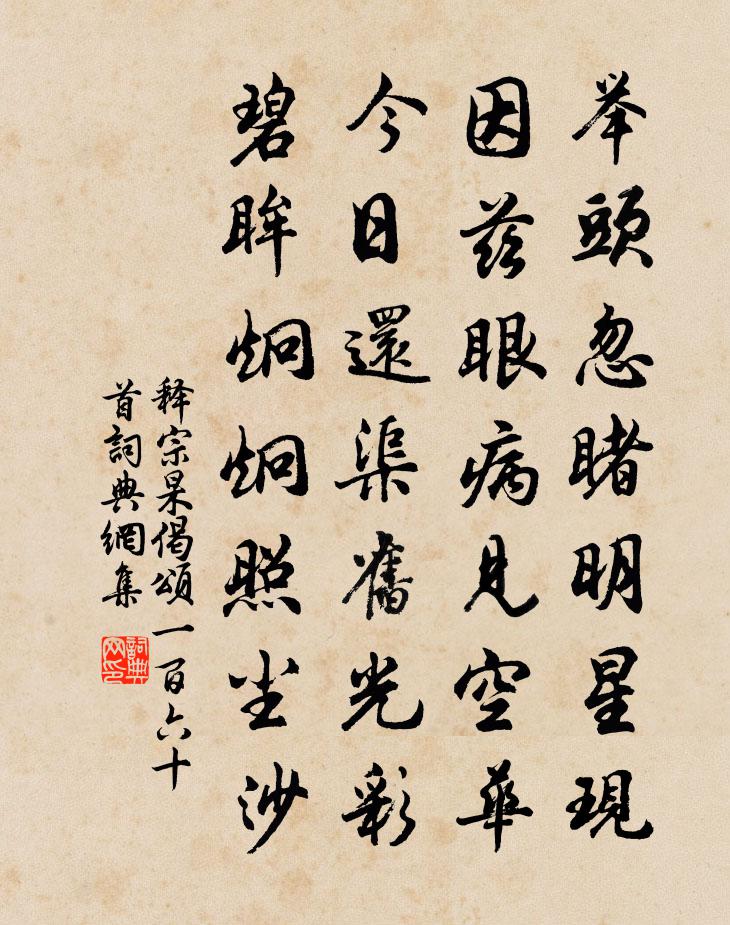 举頭忽睹明星現
因茲眼病見空華
今日還渠舊光彩
碧眸炯炯照尘沙
释宗杲偈頌一百六十
首詞典網集
詞典网印